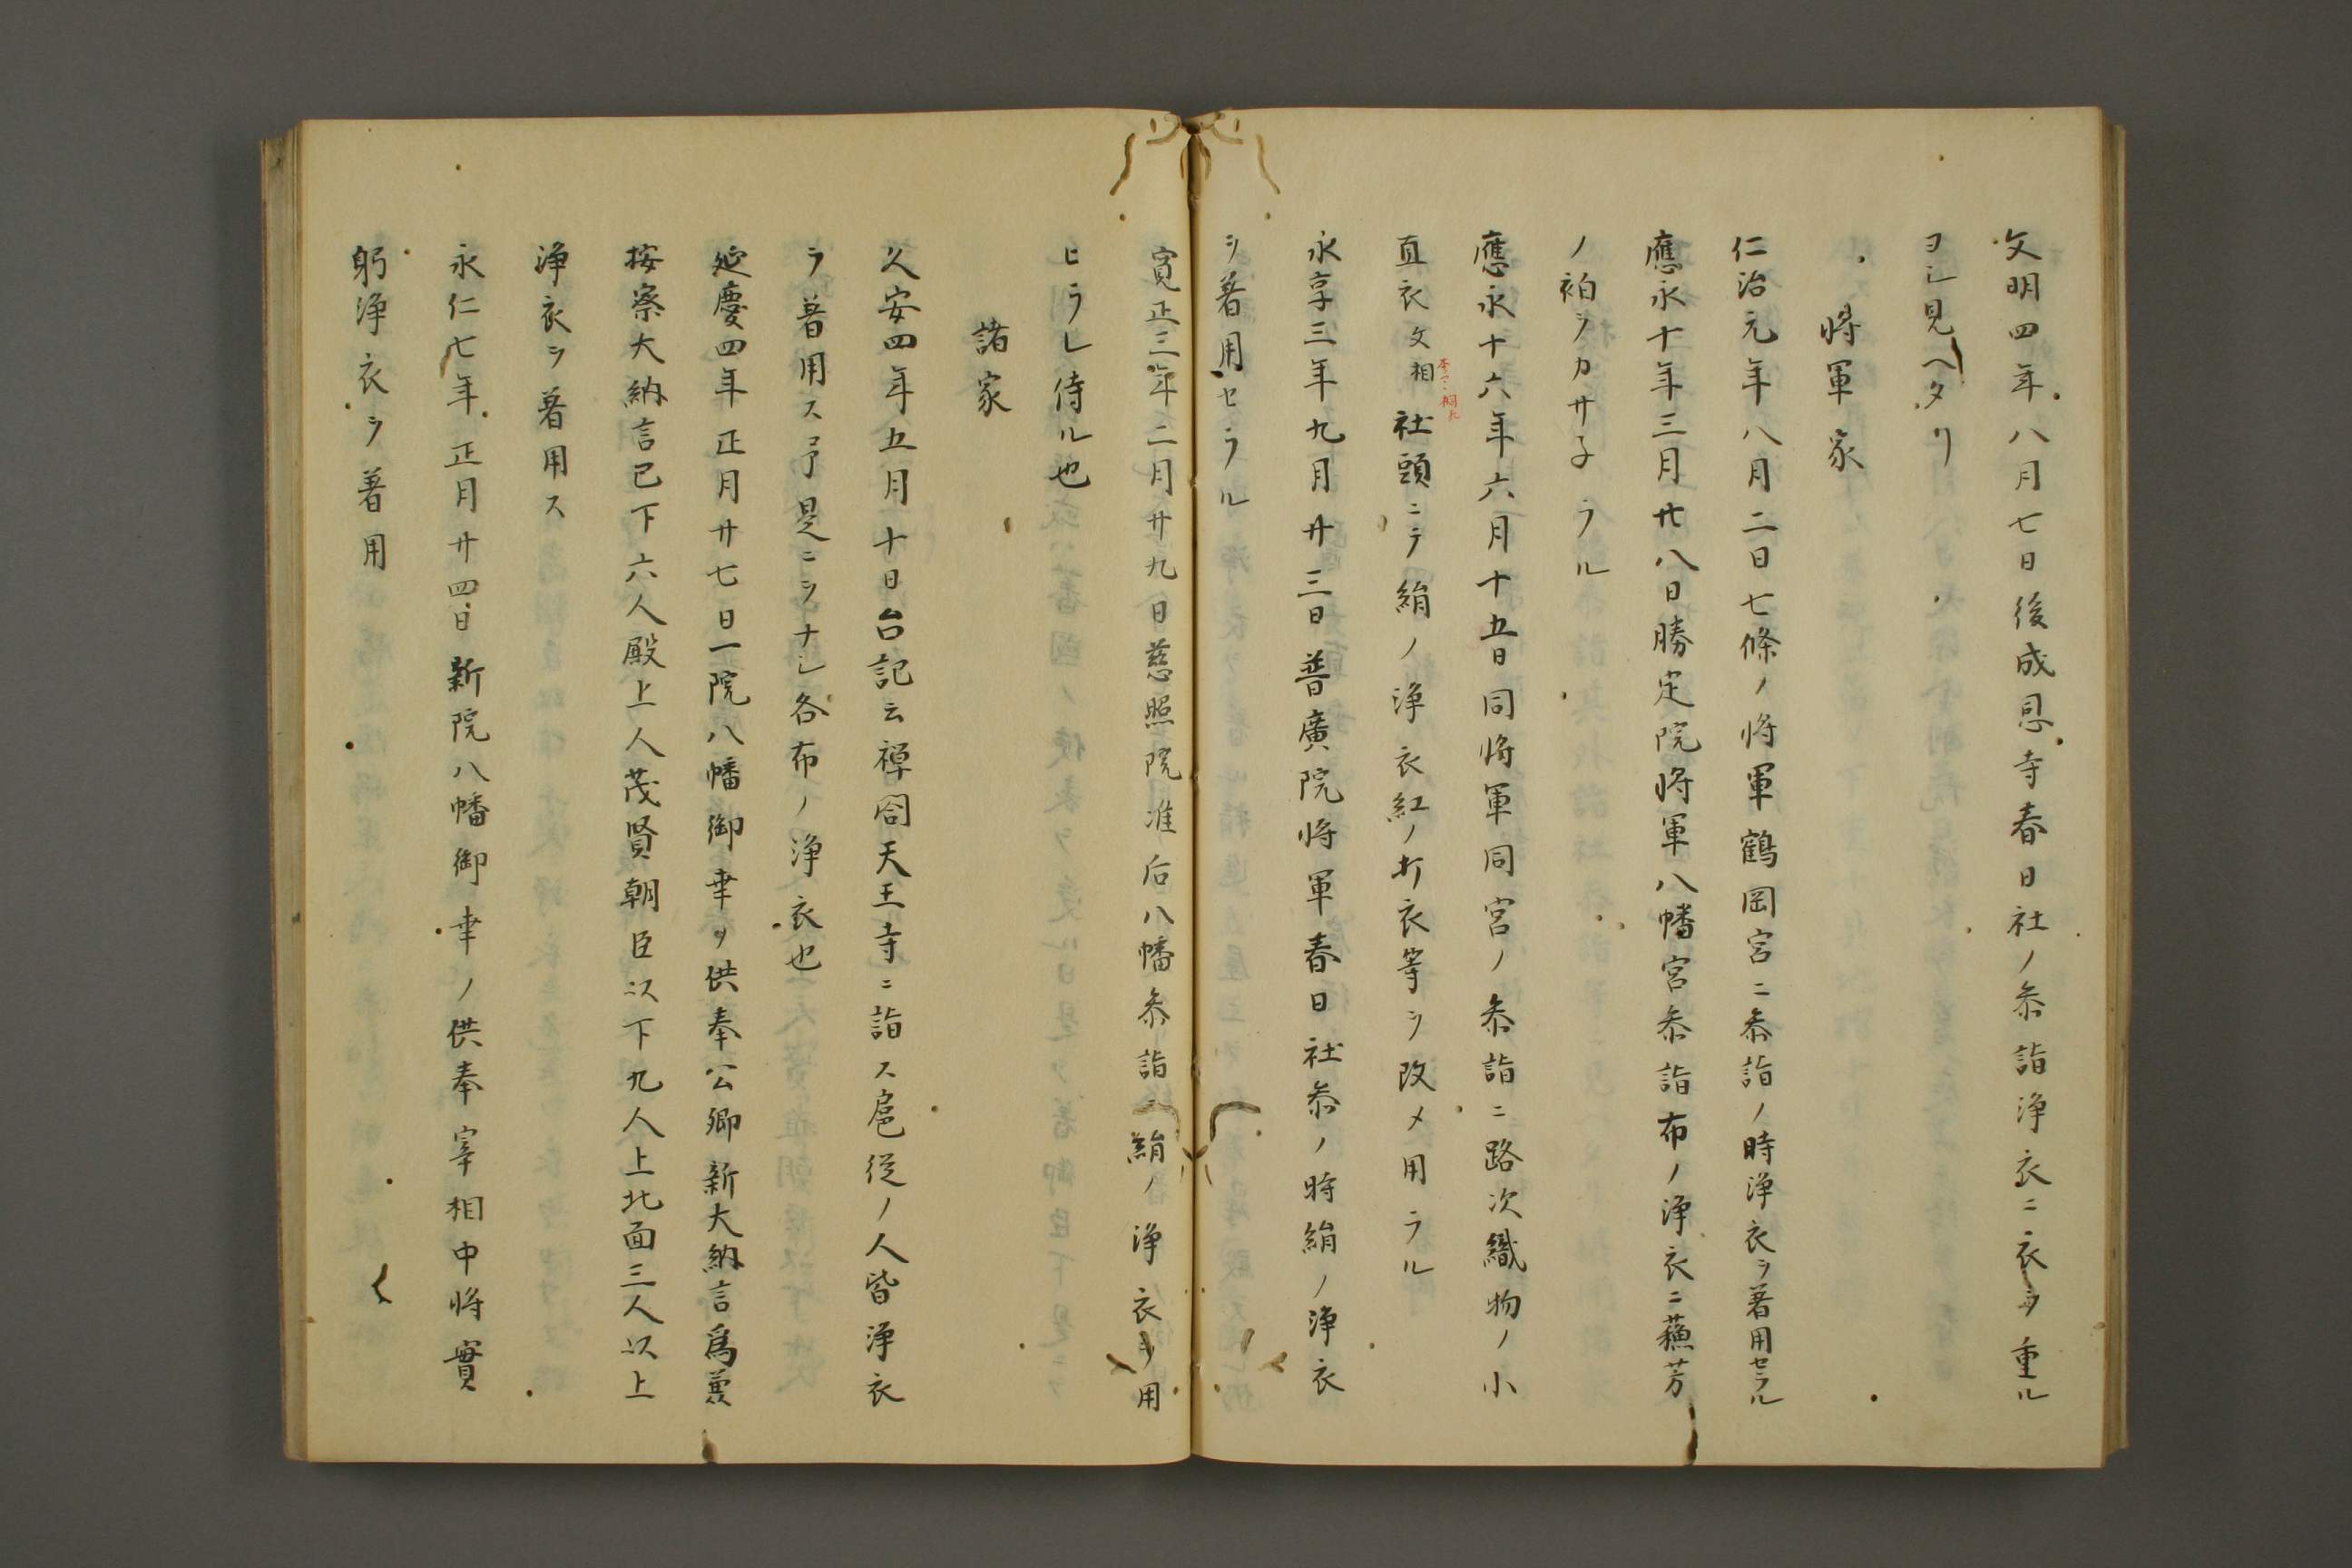 文明四年八月七日後成恩寺春日社ノ叅詣浄衣ニ衣ヲ重ル
ヨシ見ヘタリ
将軍家
仁治元年八月二日七條ノ将軍鶴岡宮ニ叅詣ノ時浄衣ヲ著用セラル
應永十年三月廿八日勝定院将軍八幡宮叅詣布ノ浄衣ニ蘓芳
ノ袙ヲカサ子ラル
應永十六年六月十五日同将軍同宮ノ叅詣ニ路次織物ノ小
直衣文相社頭ニテ絹ノ浄衣紅ノ打衣等ヲ改メ用ラル
永享三年九月廿三日普廣院将軍春日社叅ノ時絹ノ浄衣
ヲ著用セラル
寛正三年二月廿九日慈照院准后八幡叅詣ニ絹ノ浄衣ヲ用
ヒラレ侍ル也
諸家
久安四年五月十日台記云禅閤天王寺ニ詣ス扈従ノ人皆浄衣
ヲ着用ス予是ニヲナシ各布ノ浄衣也
延慶四年正月廿七日一院八幡御幸ヲ供奉公卿新大納言為兼
按察大納言已下六人殿上人茂賢朝臣以下九人上北面三人以上
浄衣ヲ著用ス
永仁七年正月廿四日新院八幡御幸ノ供奉宰相中将實
躬浄衣ヲ著用